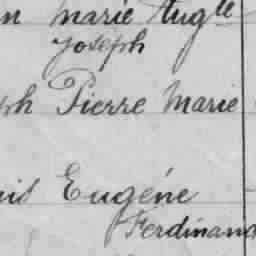 n Marie Augle
Joseph
ph Pierre Marie
uis Eugéne
Ferdinand